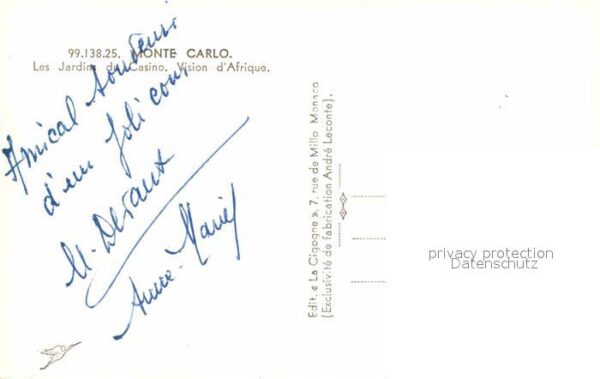 99.138.25. MONTE CARLO.
Les Jardins du Casino. Vision d'Afrique.
Amical
d'un joli
M.
Anne-Marie
Edit. « La Cigogne », 7, rue de Millo, Monaco
(Exclusivité de fabrication André Leconte).
privacy protection
Datenschutz